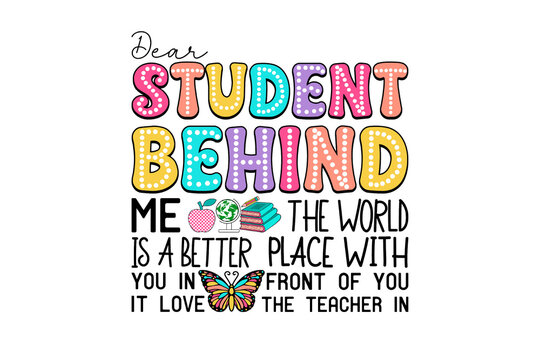 Dear
STUDENT
BEHIND
ME THE WORLD
IS A BETTER PLACE WITH
YOU IN FRONT OF YOU
IT LOVE THE TEACHER IN